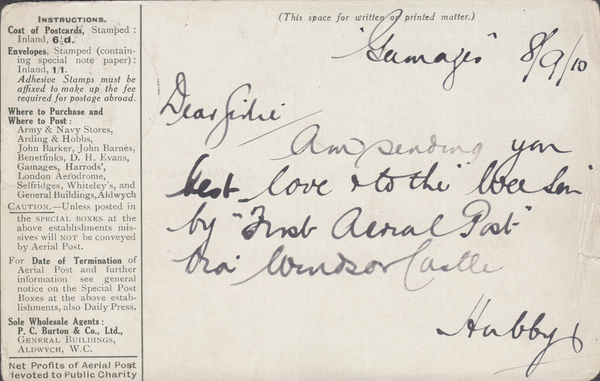 INSTRUCTIONS.
Cost of Postcards, Stamped :
Inland, 6½d.
Envelopes, Stamped (contain-
ing special note paper):
Inland, 1/1.
Adhesive Stamps must be
affixed to make up the fee
required for postage abroad.
Where to Purchase and
Where to Post :
Army & Navy Stores,
Arding & Hobbs,
John Barker, John Barnes,
Benetfinks, D. H. Evans,
Gamages, Harrods',
London Aërodrome,
Selfridges, Whiteley's, and
General Buildings, Aldwych
CAUTION.—Unless posted in
the SPECIAL BOXES at the
above establishments mis-
sives will NOT be conveyed
by Aerial Post.
For Date of Termination of
Aerial Post and further
information see general
notice on the Special Post
Boxes at the above estab-
lishments, also Daily Press.
Sole Wholesale Agents :
P. C. Burton & Co., Ltd.,
GENERAL BUILDINGS,
ALDWYCH, W.C.
Net Profits of Aerial Post
devoted to Public Charity
(This space for written or printed matter.)
"Gamages" 8/9/10
Dear Girlie
Am sending you
best love & to the "Wee Son"
by "First Aerial Post"
via Windsor Castle
Hubby